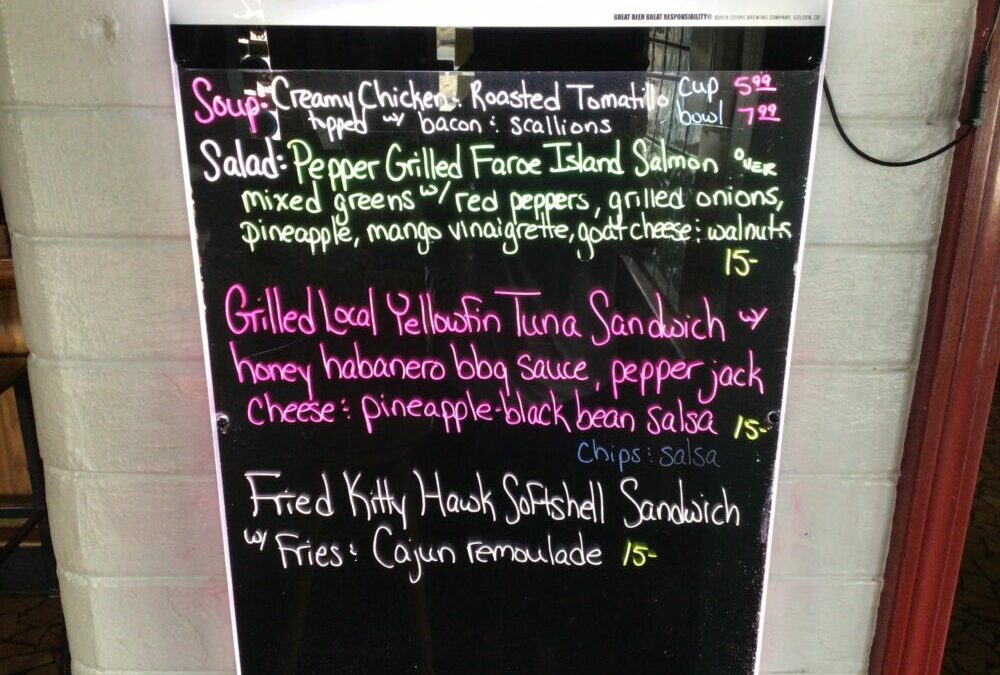 GREAT BEER GREAT RESPONSIBILITY® ©2016 COORS BREWING COMPANY, GOLDEN, CO
Soup: Creamy Chicken & Roasted Tomatillo cup 5.99
topped w/ bacon & scallions bowl 7.99
Salad: Pepper Grilled Faroe Island Salmon over
mixed greens w/ red peppers, grilled onions,
pineapple, mango vinaigrette, goat cheese & walnuts
15-
Grilled Local Yellowfin Tuna Sandwich w/
honey habanero bbq sauce, pepper jack
cheese & pineapple-black bean salsa 15-
chips & salsa
Fried Kitty Hawk Softshell Sandwich
w/ Fries & Cajun remoulade 15-